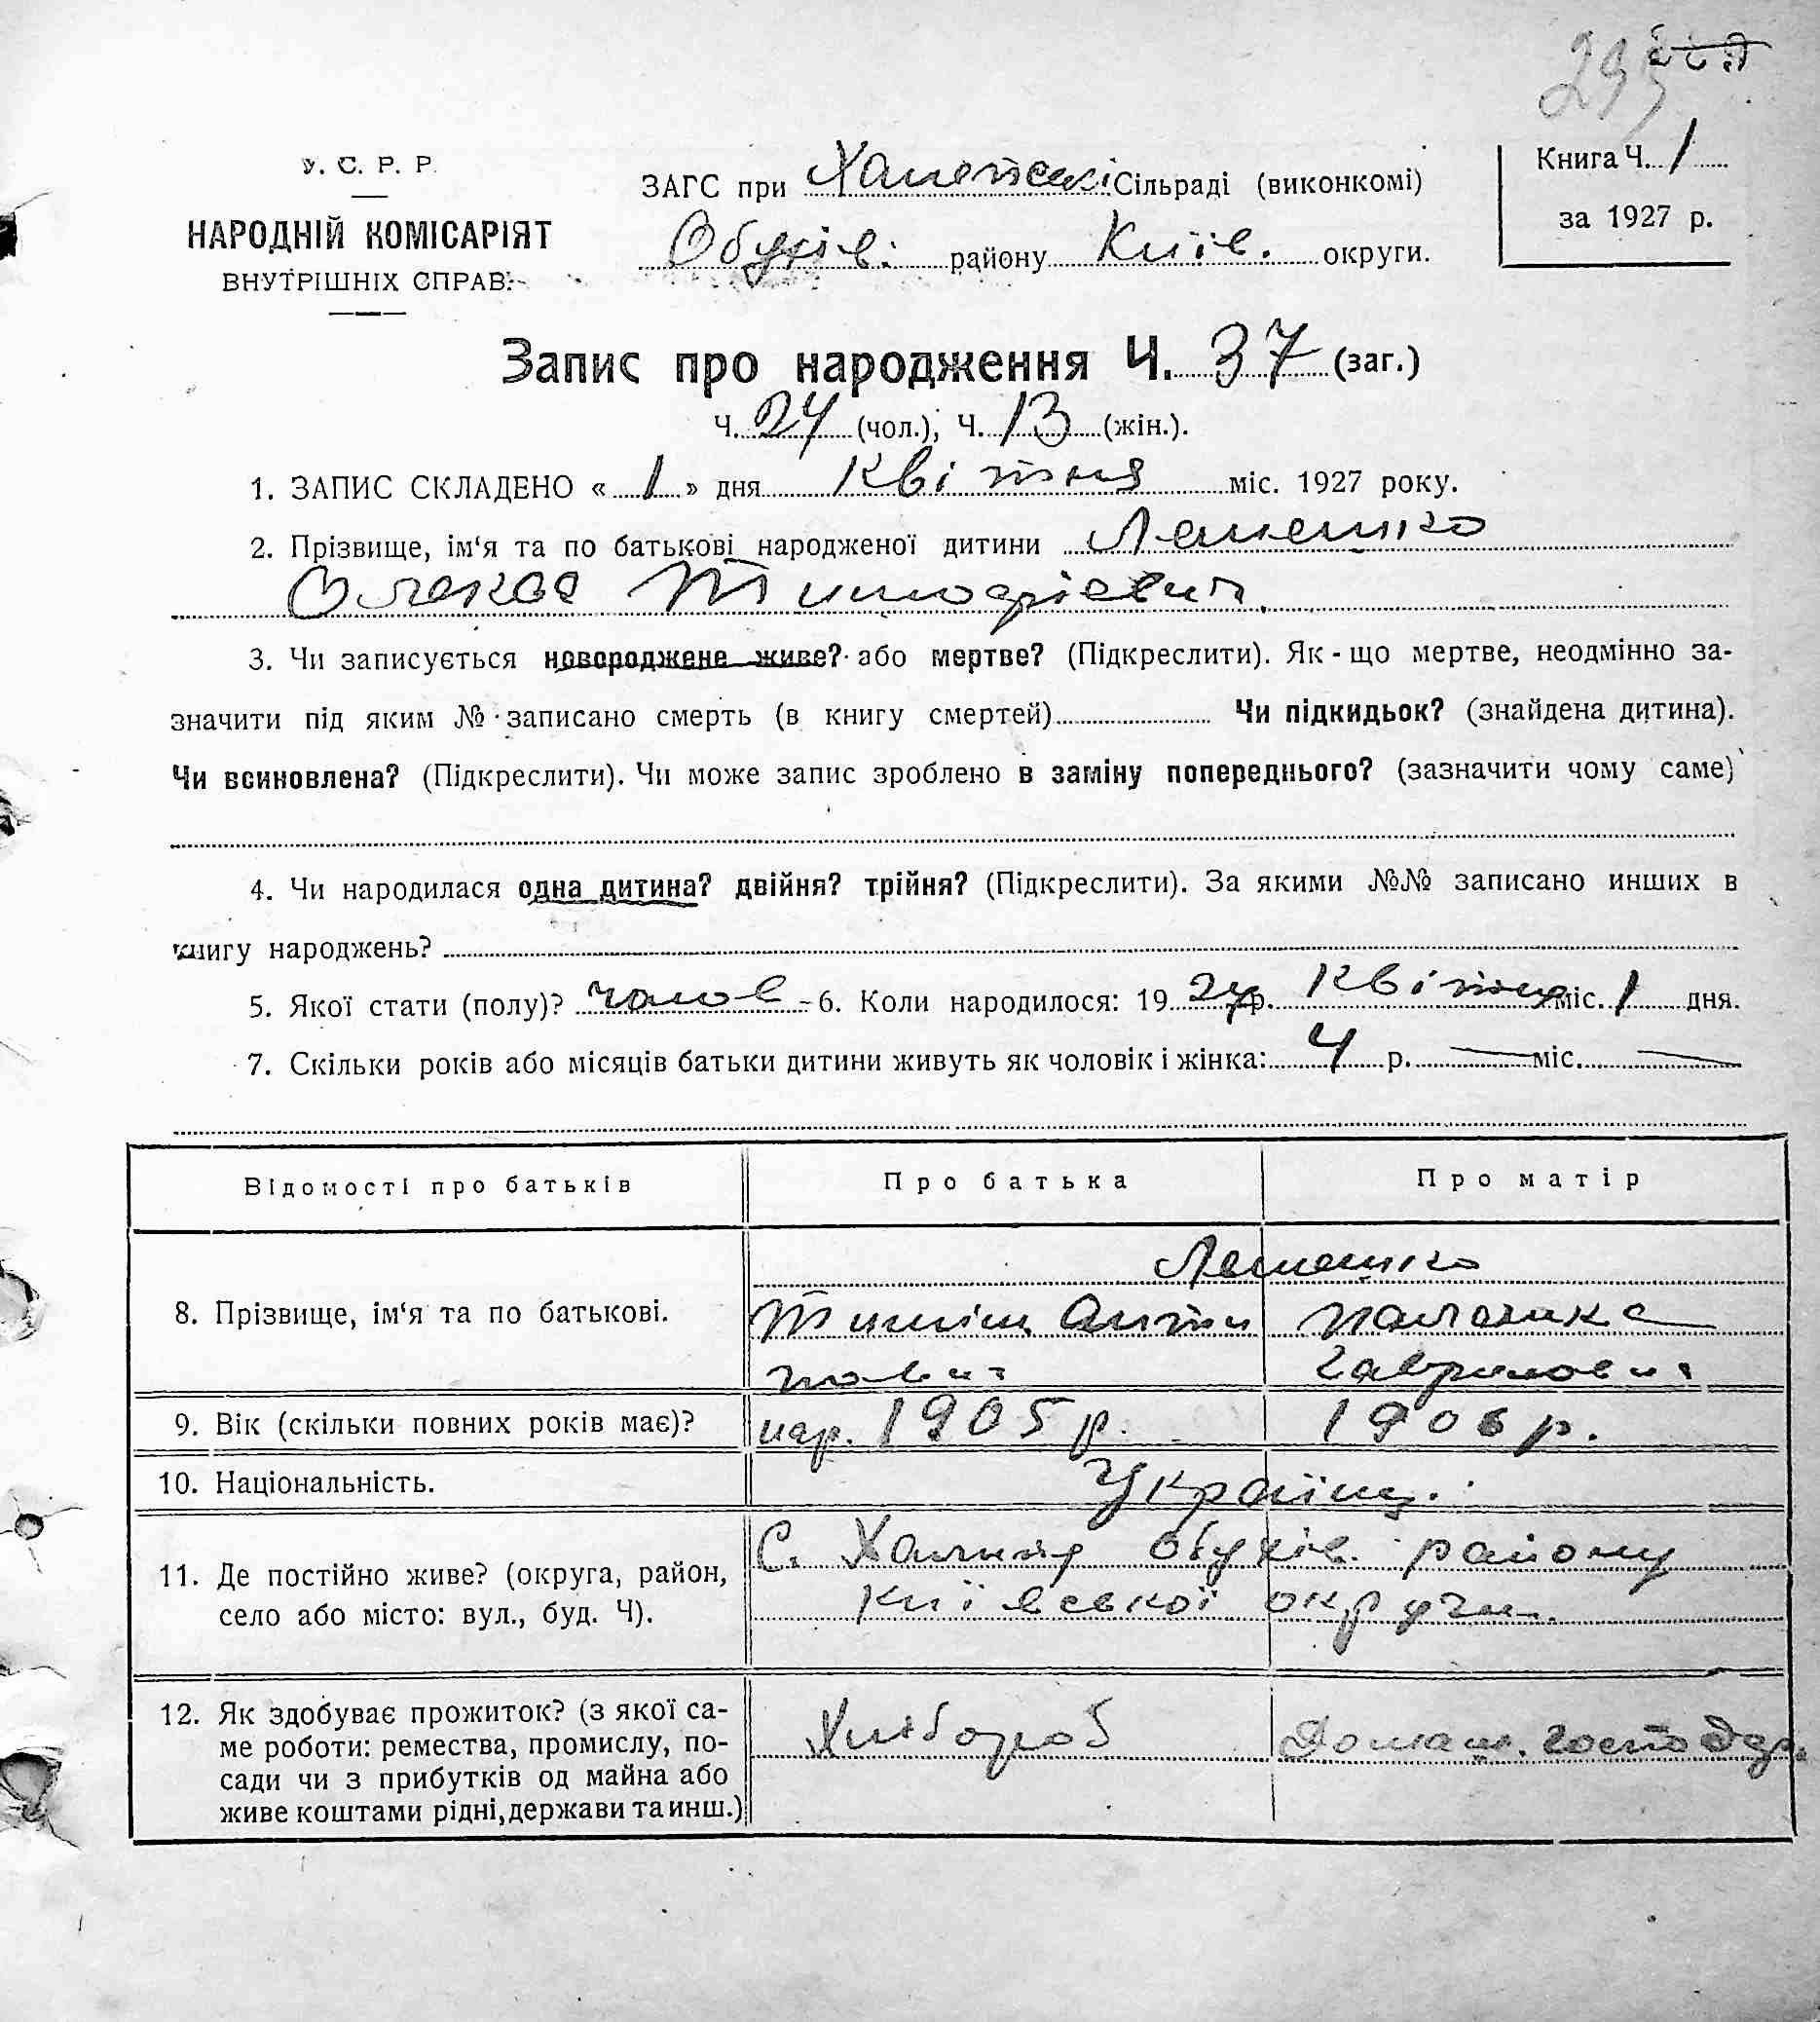 295
У. С. Р. Р.
НАРОДНІЙ КОМІСАРІЯТ
ВНУТРІШНІХ СПРАВ
ЗАГС при Сільраді (виконкомі)
Обухів. району Київ. округи.
Книга Ч. 1
за 1927 р.
Запис про народження Ч. 37 (заг.)
Ч. 24 (чол.), Ч. 13 (жін.).
1. ЗАПИС СКЛАДЕНО « 1 » дня Квітня міс. 1927 року.
2. Прізвище, ім‘я та по батькові народженої дитини Лемешко
Олекса Тимофієвич.
3. Чи записується новороджене живе? або мертве? (Підкреслити). Як-що мертве, неодмінно за-
значити під яким № записано смерть (в книгу смертей) Чи підкидьок? (знайдена дитина).
Чи всиновлена? (Підкреслити). Чи може запис зроблено в заміну попереднього? (зазначити чому саме)
4. Чи народилася одна дитина? двійня? трійня? (Підкреслити). За якими №№ записано инших в
книгу народжень?
5. Якої стати (полу)? чолов 6. Коли народилося: 1927 р. Квітня міс. 1 дня.
7. Скільки років або місяців батьки дитини живуть як чоловік і жінка: 4 р. — міс. —
Відомості про батьків Про батька Про матір
Лемешко
8. Прізвище, ім‘я та по батькові. Тиміш Анти Палажка
пович Гаврилов
9. Вік (скільки повних років має)? нар. 1905 р. 1906 р.
10. Національність. Україн.
11. Де постійно живе? (округа, район, С. Халепя Обухів. району
село або місто: вул., буд. Ч). Київської округи.
12. Як здобуває прожиток? (з якої са- Хлібороб Домаш. господар.
ме роботи: ремества, промислу, по-
сади чи з прибутків од майна або
живе коштами рідні, держави та инш.)